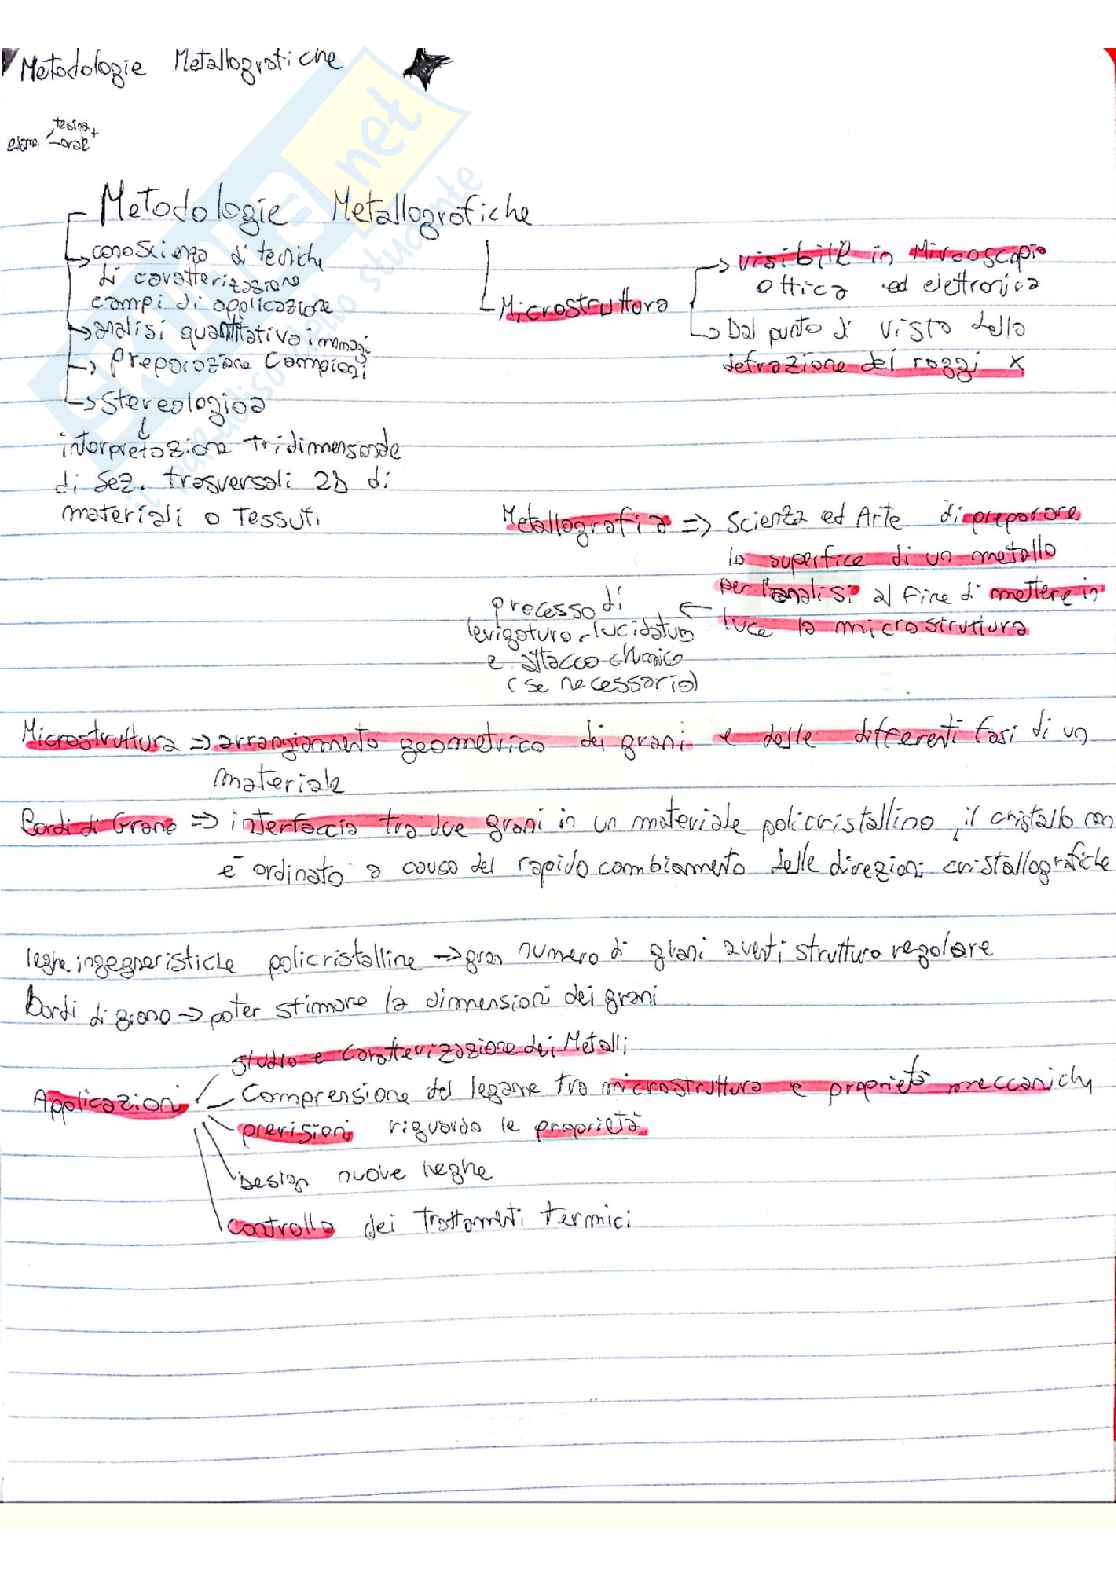 Metodologie Metallografiche
esame tesina +
orale
Metodologie Metallografiche
conoscienza di tecniche
di caratterizazione
campi di applicazione
analisi quantitativa immagi
preparazione campioni
Stereologica
interpretazione tridimensionale
di sez. trasversali 2D di
materiali o Tessuti
Microstruttura
visibile in Microscopia
ottica ed elettronica
Dal punto di vista della
defrazione dei raggi X
Metallografia => Scienza ed Arte di preparare
la superfice di un metallo
per l'analisi al fine di mettere in
luce la microstruttura
processo di
levigatura, lucidatura
e attacco chimico
(se necessario)
Microstruttura => arrangiamento geometrico dei grani e delle differenti fasi di un
materiale
Bordi di Grano => interfaccia tra due grani in un materiale policristallino, il cristallo non
è ordinato a causa del rapido cambiamento delle direzioni cristallografiche
leghe ingegneristiche policristalline -> gran numero di grani aventi struttura regolare
Bordi di grano -> poter stimare la dimensioni dei grani
Applicazioni
studio e caratterizazione dei Metalli
Comprensione del legame tra microstruttura e proprietà meccaniche
previsioni riguardo le proprietà
Design nuove leghe
controllo dei trattamenti termici